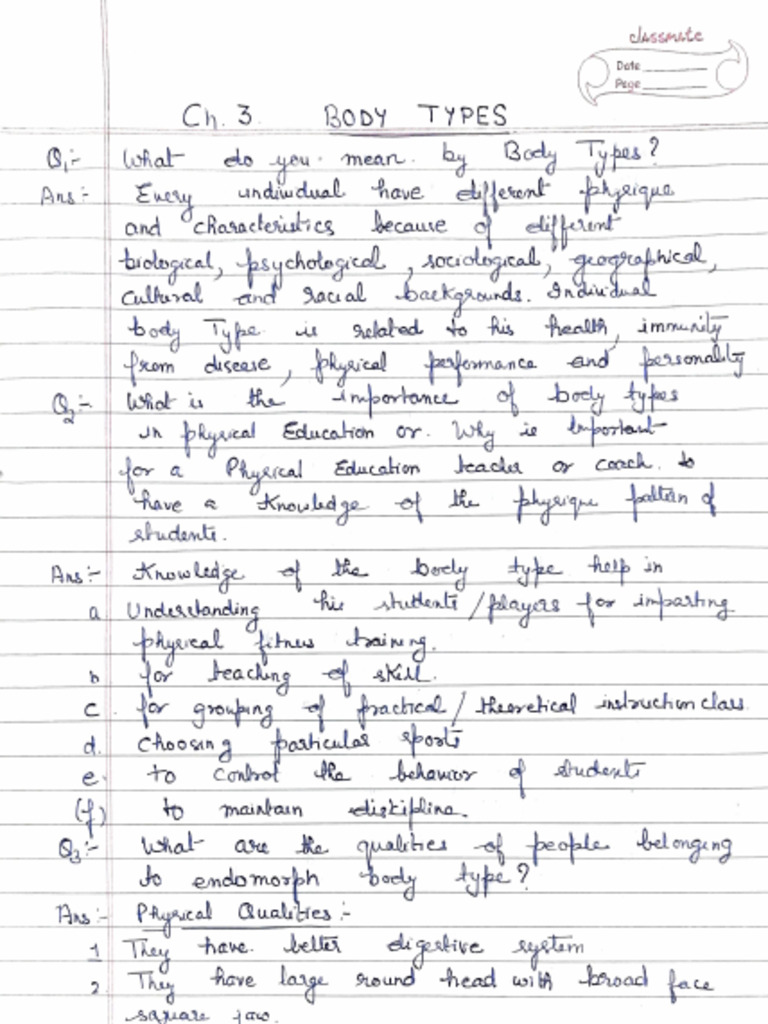 classmate
Date
Page
Ch. 3 BODY TYPES
Q1:- What do you mean by Body Types?
Ans:- Every individual have different physique
and characteristics because of different
biological, psychological, sociological, geographical,
cultural and racial backgrounds. Individual
body Type is related to his health, immunity
from disease, physical performance and personality
Q2:- What is the importance of body types
in physical Education or. Why is important
for a Physical Education teacher or coach. to
have a Knowledge of the physique pattern of
students.
Ans:- Knowledge of the body type help in
a Understanding his students/players for imparting
physical fitness training.
b for teaching of skill.
c. for grouping of practical/theoretical instruction class.
d. Choosing particular sports
e. to control the behavior of students
(f) to maintain diskipline.
Q3:- What are the qualities of people belonging
to endomorph body type?
Ans:- Physical Qualities:-
1 They have better digestive system
2 They have large round head with broad face
square jaw.